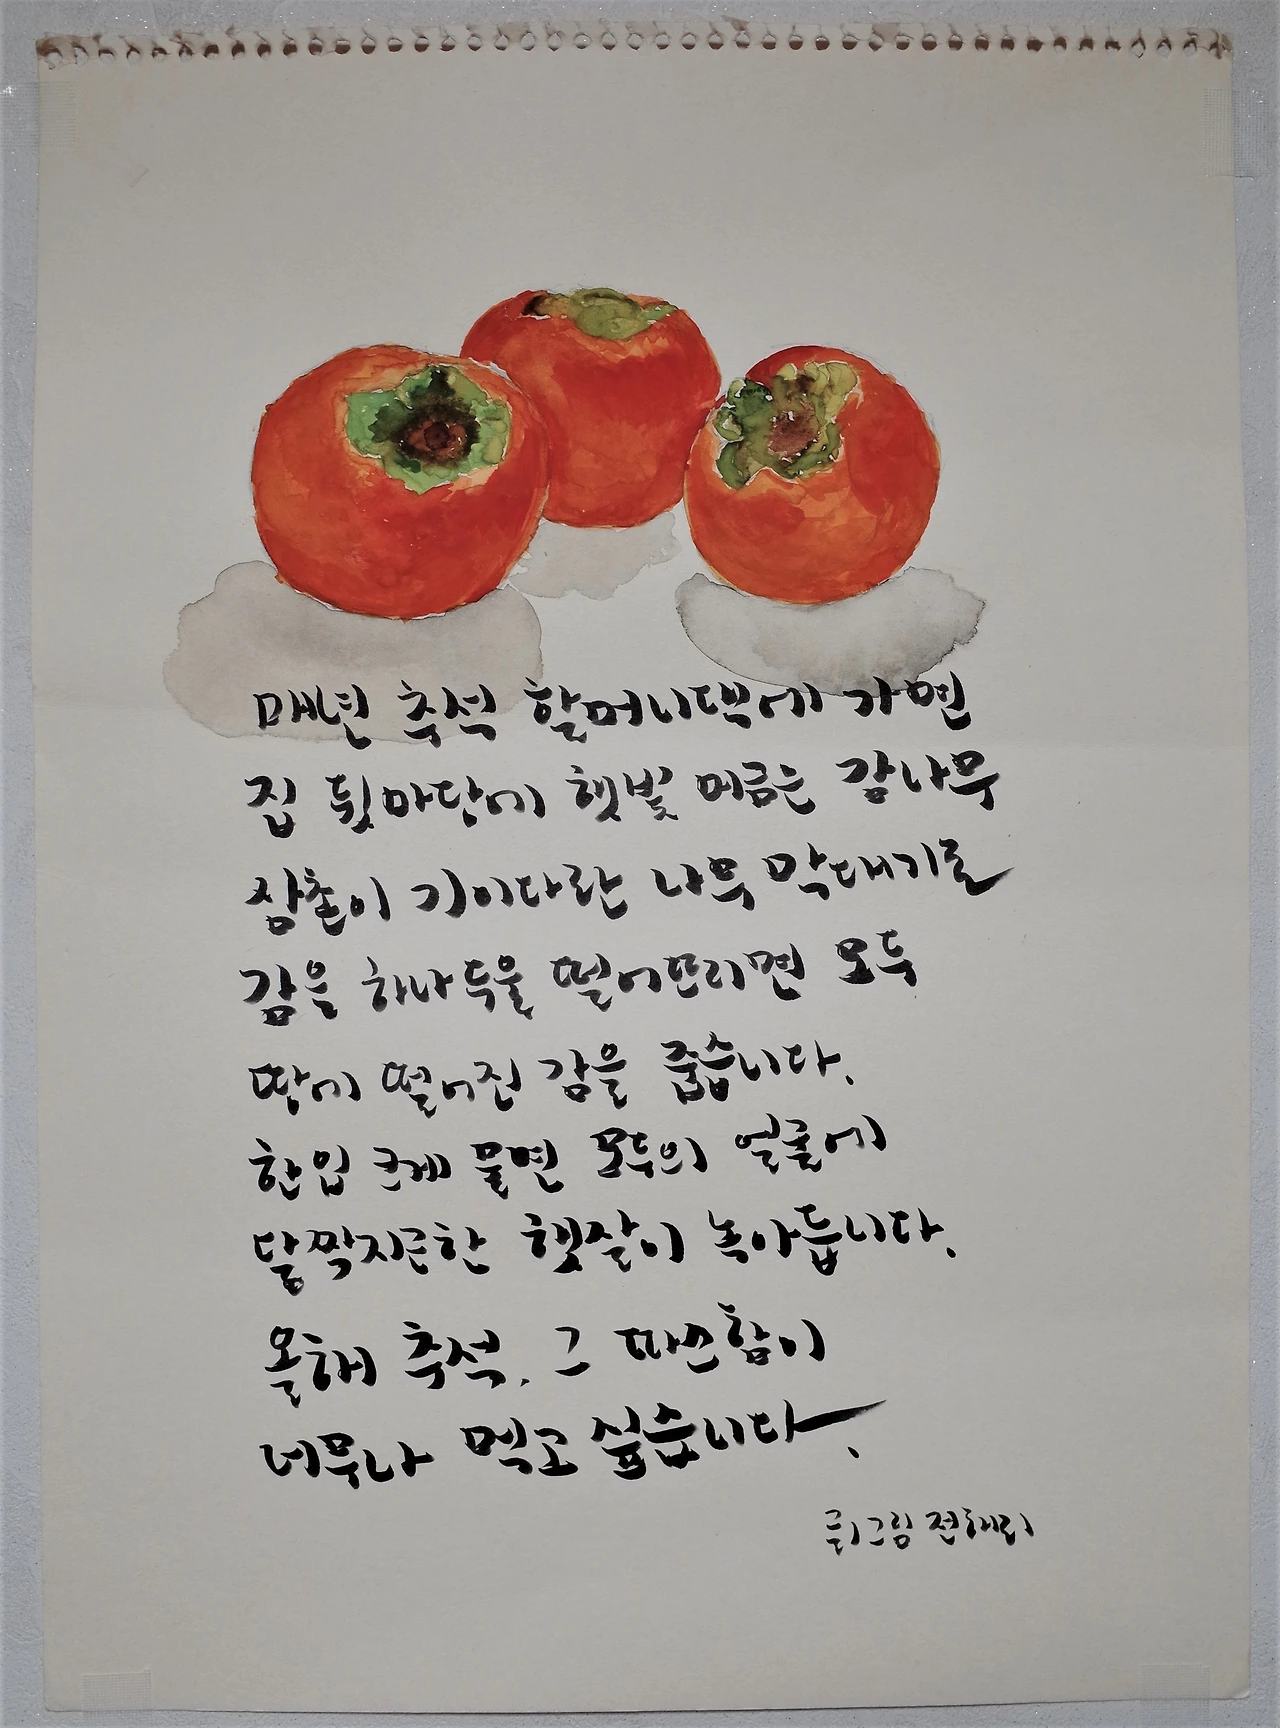 매년 추석 할머니댁에 가면
집 뒷마당에 햇빛 머금은 감나무
삼촌이 기이다란 나무 막대기로
감을 하나 두울 떨어뜨리면 모두
땅에 떨어진 감을 줍습니다.
한입 크게 물면 모두의 얼굴에
달짝지근한 햇살이 녹아듭니다.
올해 추석, 그 따스함이
너무나 먹고 싶습니다.
글/그림 전해리